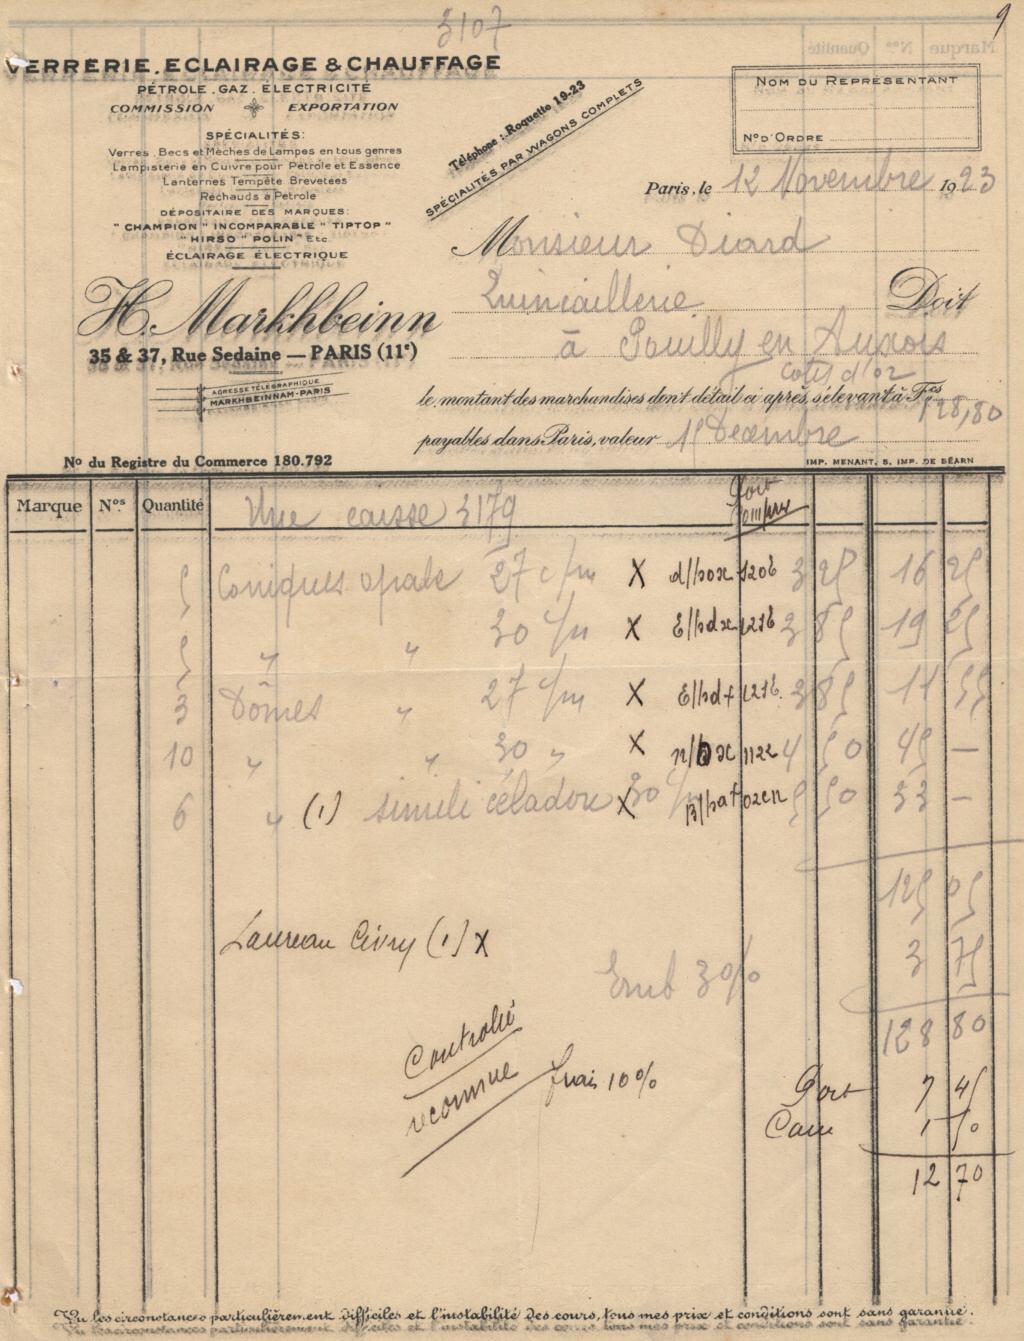 3107
9
VERRERIE. ECLAIRAGE & CHAUFFAGE
PÉTROLE. GAZ. ÉLECTRICITÉ
COMMISSION EXPORTATION
SPÉCIALITÉS:
Verres, Becs et Mèches de Lampes en tous genres
Lampisterie en Cuivre pour Pétrole et Essence
Lanternes Tempête Brevetées
Réchauds à Pétrole
DÉPOSITAIRE DES MARQUES:
"CHAMPION" INCOMPARABLE" TIPTOP"
"HIRSO" POLIN" Etc
ÉCLAIRAGE ÉLECTRIQUE
H. Markhbeinn
35 & 37, Rue Sedaine — PARIS (11e)
ADRESSE TÉLÉGRAPHIQUE
MARKHBEINNAM-PARIS
No du Registre du Commerce 180.792
Téléphone: Roquette 19-23
SPÉCIALITÉS PAR WAGONS COMPLETS
Marque Nos Quantité
NOM DU REPRÉSENTANT
No D'ORDRE
Paris, le 12 Novembre 1923
Monsieur Diard
Quincaillerie Doit
à Pouilly en Auxois
Cote d'or
le montant des marchandises dont détail ci après, s'élevant à Frcs 128,80
payables dans Paris, valeur 15 Décembre
IMP. MENANT, 5, IMP. DE BÉARN
Marque Nos. Quantité Une caisse 3179 Port compris
5 Coniques opale 27 c/m X d/box 1206 3 25 16 25
5 " " 30 c/m X E/bdx 1216 3 85 19 25
3 Dômes " 27 c/m X E/bd+ 1216. 3 85 11 55
10 " " 30 " X 1122 4 50 45 —
6 " (1) simili céladon 30 c/m X 5 50 33 —
125 05
Laureau Civry (1) X
Emb 3% 3 75
128 80
Controlé
reconnue frais 10%
Port 7 45
Cam 1 50
12 70
Vu les circonstances particulièrement difficiles et l'instabilité des cours, tous mes prix et conditions sont sans garantie.